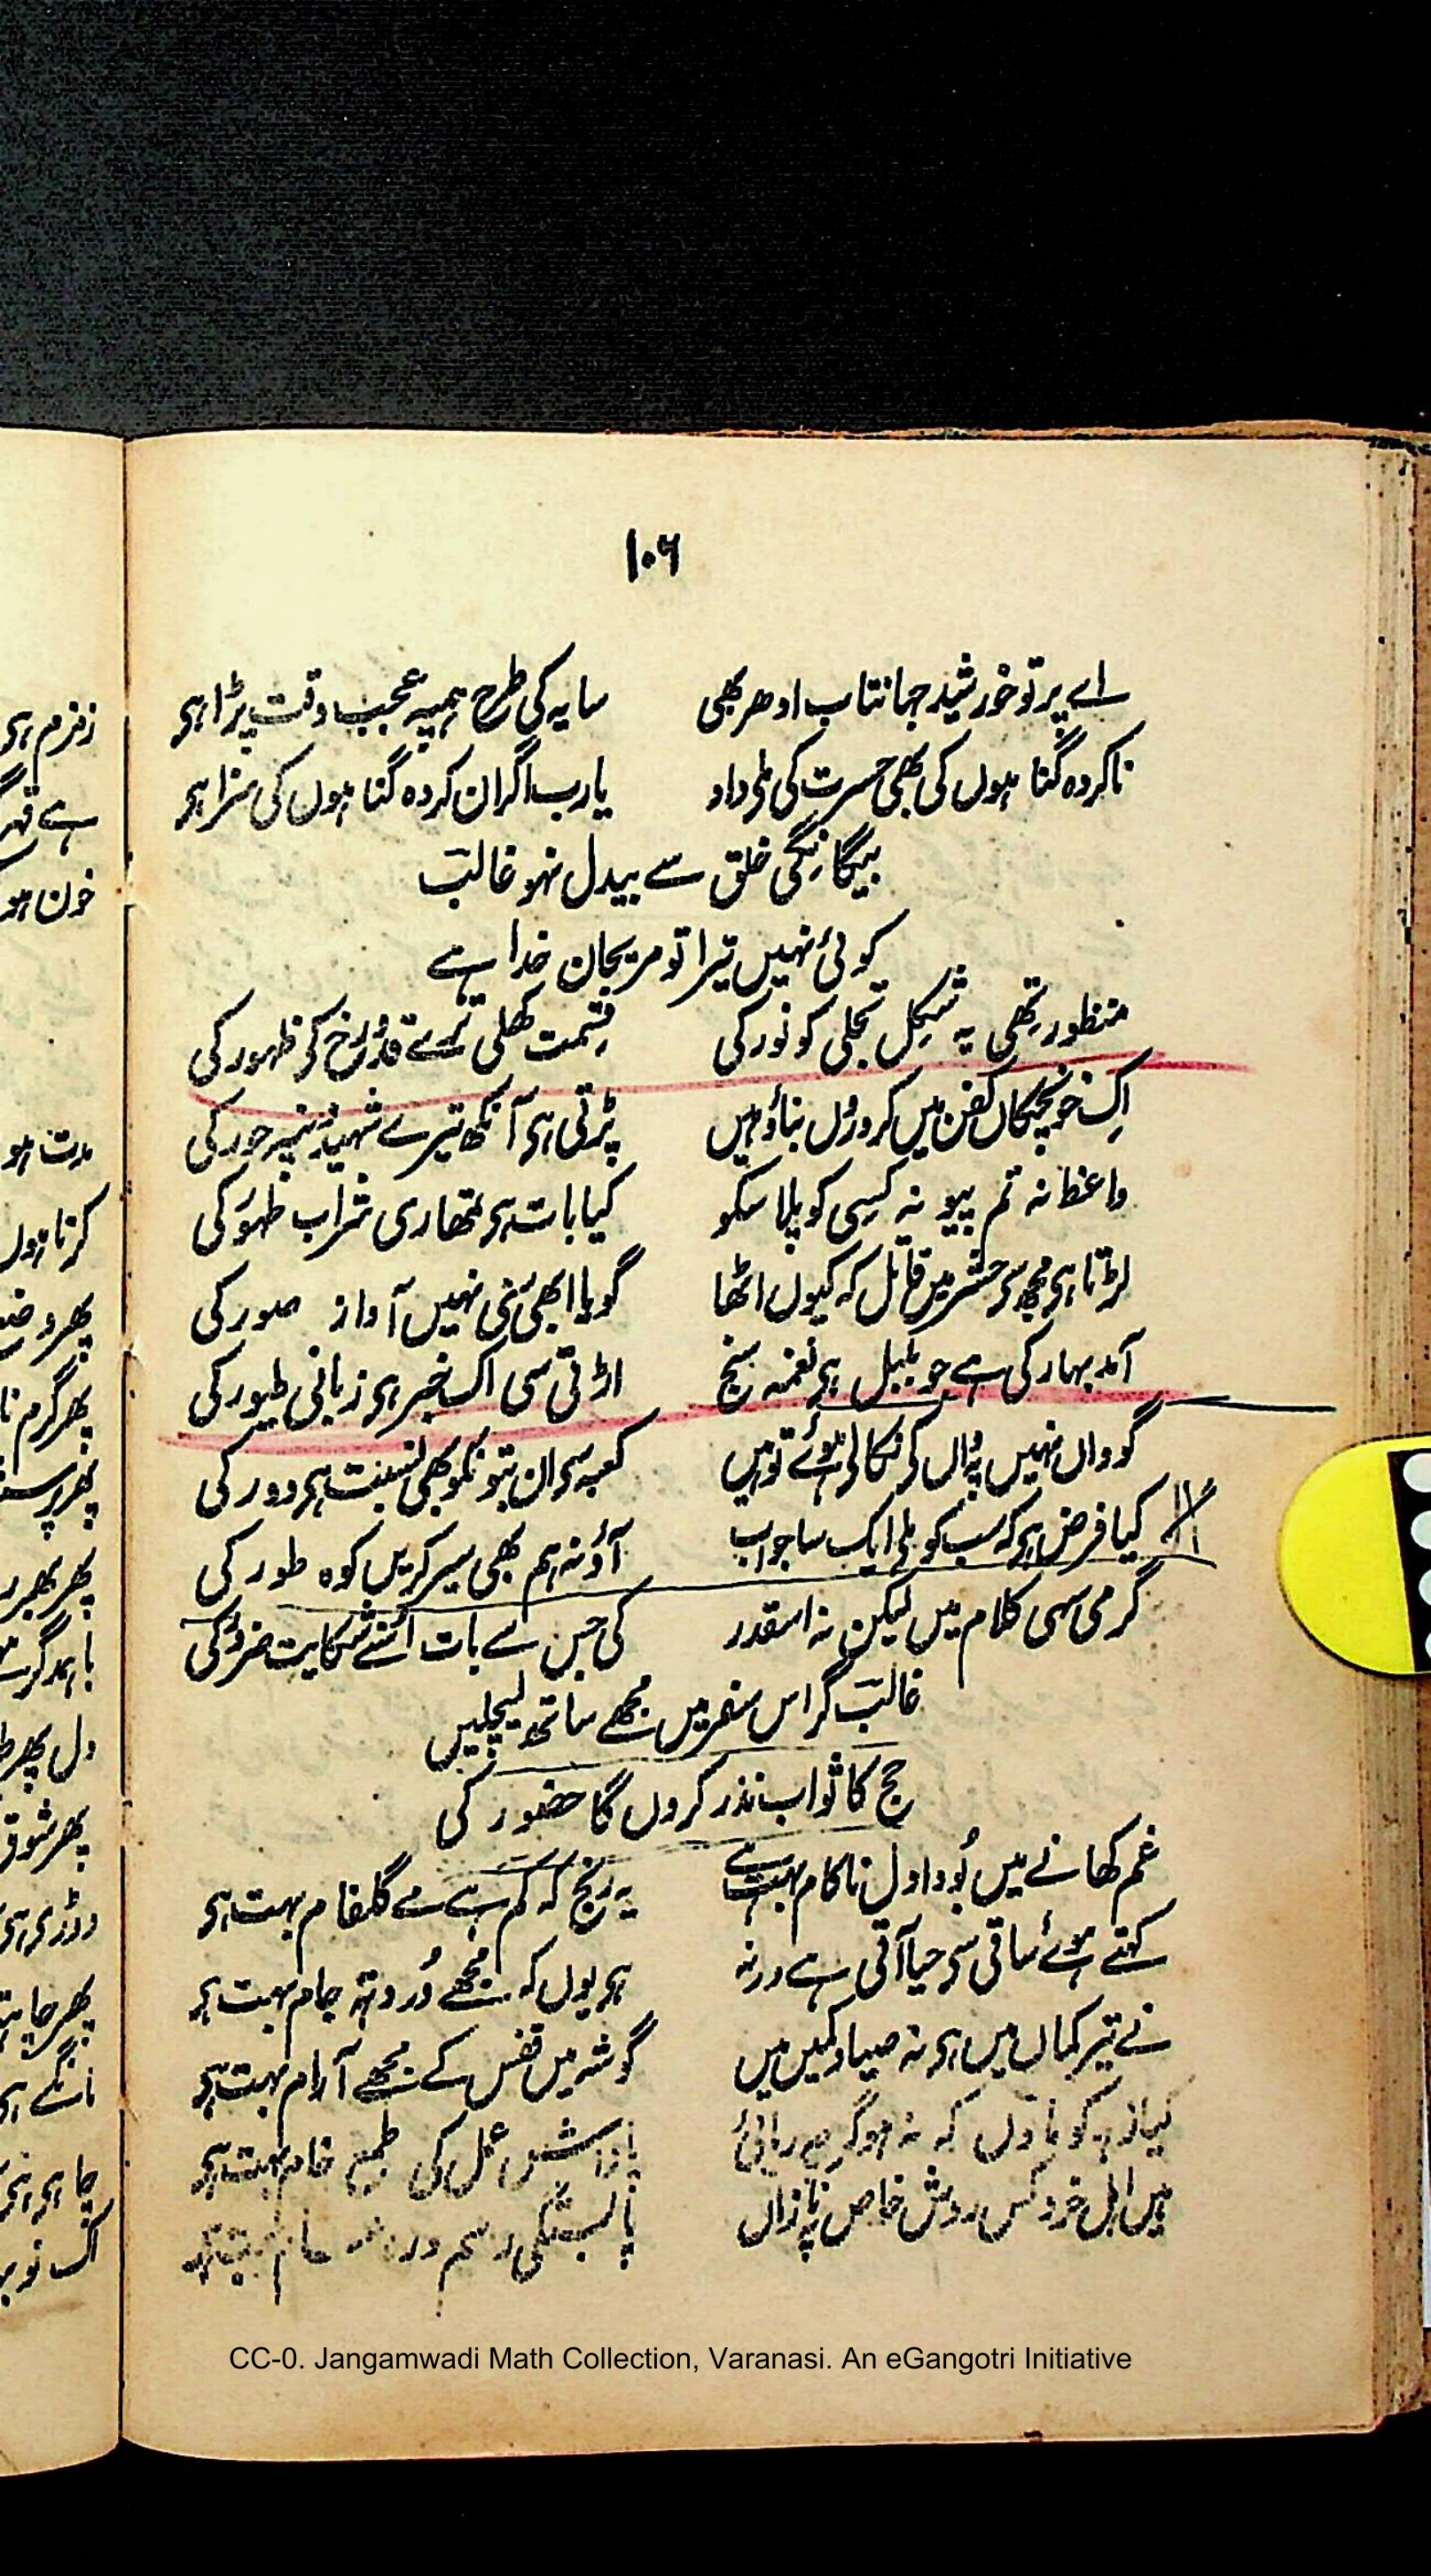 ۱۰۶
اے پرتو خورشید جہانتاب ادھر بھی سایہ کی طرح ہمپہ عجب وقت پڑا ہی
ناکردہ گناہوں کی بھی حسرت کی ملی داد یارب اگر ان کردہ گناہوں کی سزا ہی
بیگانگی خلق سے بیدل نہو غالب
کوئی نہیں تیرا تو مریجان خدا ہے
منظور تھی یہ شکل تجلی کو نور کی قسمت کھلی ترے قد و رخ کی ظہور کی
اک خونچکاں کفن میں کروڑوں بناؤ ہیں پڑتی ہی آنکھ تیرے شہیدونپہ حور کی
واعظ نہ تم پیو نہ کسی کو پلا سکو کیا بات ہی تمھاری شراب طہور کی
لڑتا ہی مجھ سی حشر میں قاتل کہ کیوں اٹھا گویا ابھی سنی نہیں آواز صور کی
آمد بہار کی ہے جو بلبل ہی نغمہ سنج اڑتی سی اک خبر ہی زبانی طیور کی
گو واں نہیں پہ واں کی نکالی ہوئے تو ہیں کعبہ سی ان بتونکو بھی نسبت ہی دور کی
کیا فرض ہی کہ سب کو ملی ایک سا جواب آؤ نہ ہم بھی سیر کریں کوہ طور کی
گرمی سہی کلام میں لیکن نہ اسقدر کی جس سے بات اسنے شکایت ضرور کی
غالب گر اس سفر میں مجھے ساتھ لیچلیں
حج کا ثواب نذر کروں گا حضور کی
غم کھانے میں بودا دل ناکام بہت ہے یہ رنج کہ کم ہے مے گلفام بہت ہی
کہتے ہوئے ساقی سی حیا آتی ہے ورنہ ہی یوں کہ مجھے درد تہ جام بہت ہی
نے تیر کماں میں ہی نہ صیاد کمیں میں گوشہ میں قفس کے مجھے آرام بہت ہی
کیا زہد کو مانوں کہ نہ ہو گرچہ ریائی پاداش عمل کی طمع خام بہت ہی
ہیں اہل خرد کس روش خاص پہ نازاں پابستگی رسم و رہ عام بہت ہی
زمزم ہی
ہے قہر
خون ہو
مدت ہو
کرتا ہوں
پھر
پھر گرم نا
پھر
باہمدگر
دل پھر
پھر شوق
دوڑی ہی
پھر چاہتا
مانگے ہی
چاہی ہی
اک نو بہ
CC-0. Jangamwadi Math Collection, Varanasi. An eGangotri Initiative